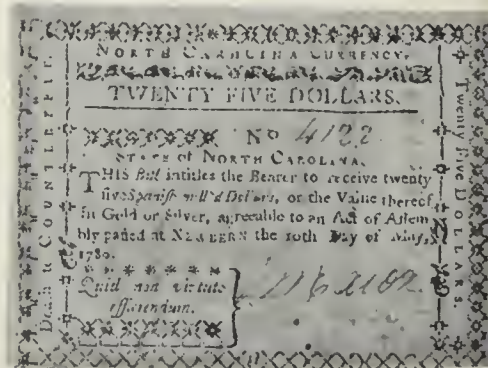 NORTH CAROLINA CURRENCY.
TWENTY FIVE DOLLARS.
No 4122
STATE of NORTH CAROLINA.
THIS Bill intitles the Bearer to receive twenty
five Spanish mill'd Dollars, or the Value thereof
in Gold or Silver, agreeable to an Act of Assem
bly passed at NEWBERN the 10th Day of May,
1780.
Quid non virtute
efficiendum.
Death to COUNTERFEIT.
Twenty Five DOLLARS.